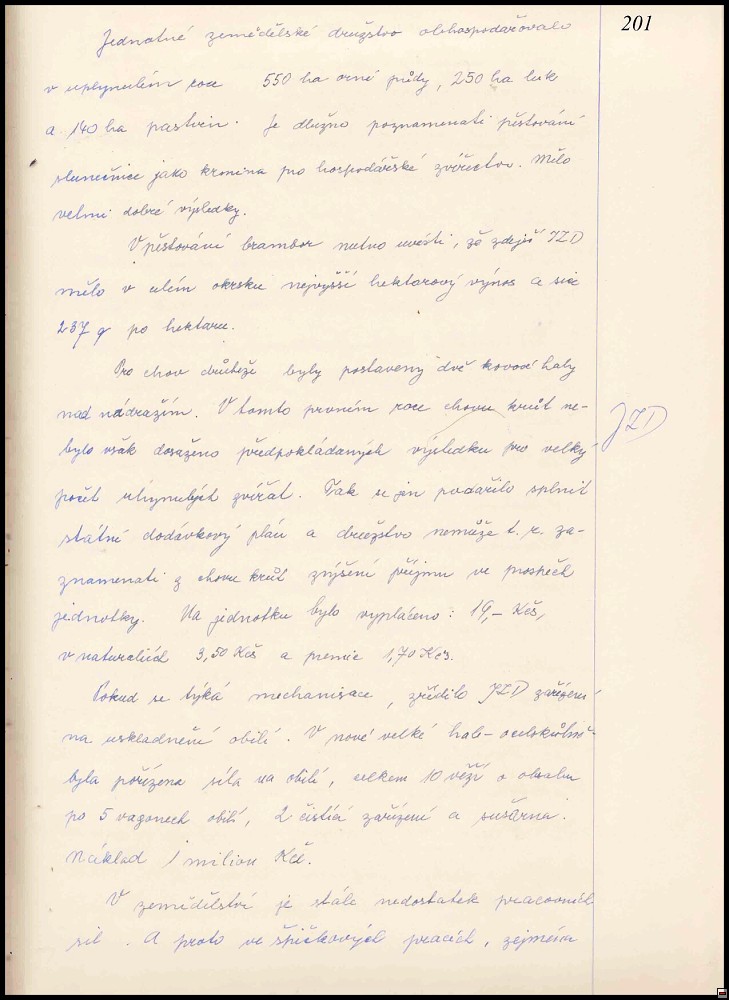 201
Jednotné zemědělské družstvo obhospodařovalo
v uplynulém roce 550 ha orné půdy, 250 ha luk
a 140 ha pastvin. Je dlužno poznamenati pěstování
slunečnice jako krmina pro hospodářské zvířectvo. Mělo
velmi dobré výsledky.
V pěstování brambor nutno uvésti, že zdejší JZD
mělo v celém okrsku nejvyšší hektarový výnos a sice
237 q po hektaru.
Pro chov drůbeže byly postaveny dvě kovové haly
nad nádražím. V tomto prvném roce chovu krůt ne-
bylo však dosaženo předpokládaných výsledku pro velký
JZD
počet uhynulých zvířat. Tak se jen podařilo splnit
státní dodávkový plán a družstvo nemůže t. r. za-
znamenati z chovu krůt zvýšení příjmu ve prospěch
jednotky. Na jednotku bylo vypláceno: 19,- Kčs,
v naturaliích 3,50 Kčs a premie 1,70 Kčs.
Pokud se týká mechanisace, zřídilo JZD zařízení
na uskladnění obilí. V nové velké hale-ocelokůlně-
byla pořízena síla na obilí, celkem 10 věží o obsahu
po 5 vagonech obilí, 2 čistící zařízení a sušárna.
Náklad 1 milion Kčs.
V zemědělství je stále nedostatek pracovních
sil. A proto ve špičkových pracích, zejména